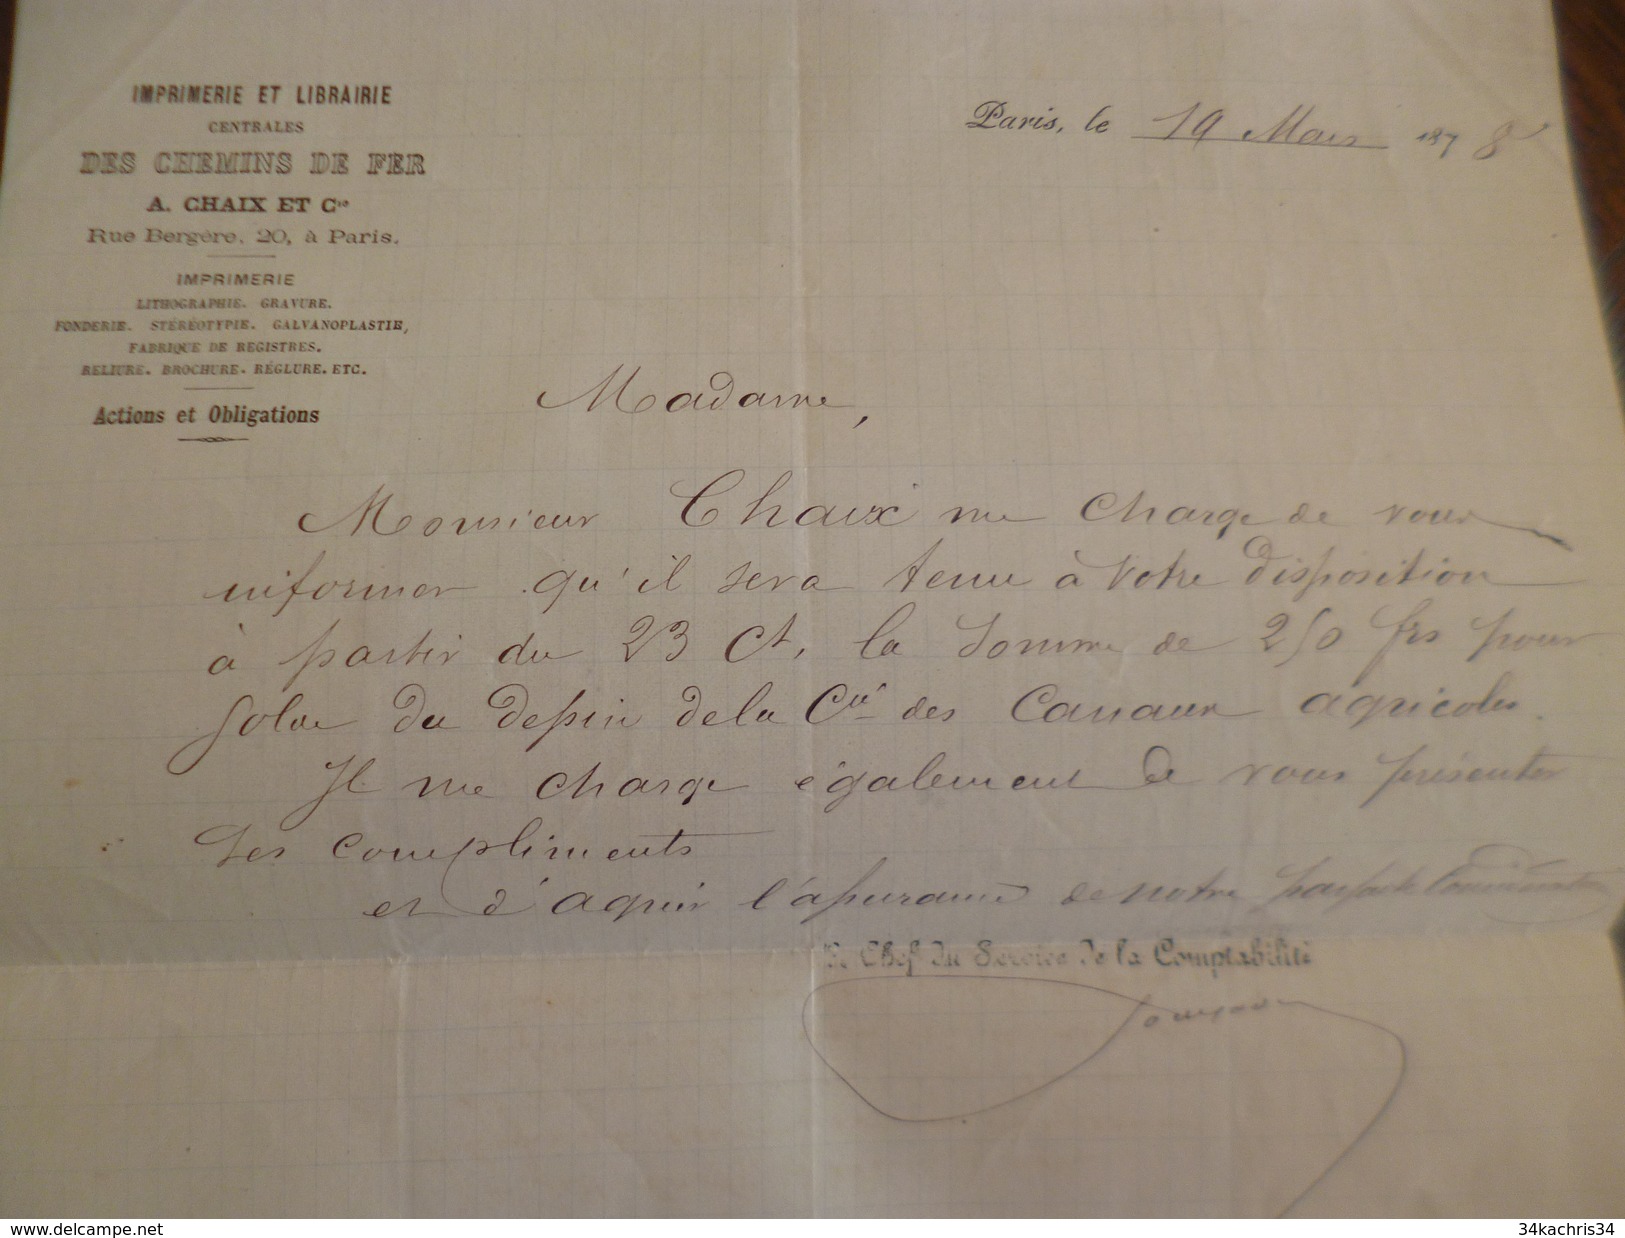 IMPRIMERIE ET LIBRAIRIE
CENTRALES
DES CHEMINS DE FER
A. CHAIX ET Cie
Rue Bergère, 20, à Paris.
IMPRIMERIE
LITHOGRAPHIE. GRAVURE.
FONDERIE. STÉRÉOTYPIE. GALVANOPLASTIE,
FABRIQUE DE REGISTRES.
RELIURE. BROCHURE. RÉGLURE. ETC.
Actions et Obligations
Paris, le 19 Mars 1878
Madame,
Monsieur Chaix me charge de vous
informer qu'il sera tenu à votre disposition
à partir du 23 Ct, la somme de 250 frs pour
solde du dessin de la Cie des Canaux agricoles.
Il me charge également de vous présenter
ses compliments
et d'agréer l'assurance de notre parfaite
Le Chef du Service de la Comptabilité
www.delcampe.net
34kachris34